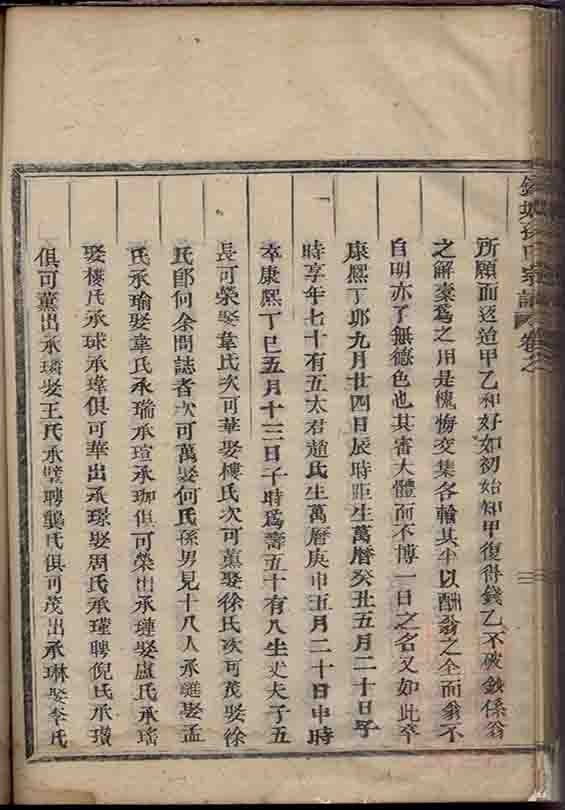 所願而返迨甲乙和好如初始知甲復得錢乙不破鈔係翁
之解橐爲之用是槐悔交集各輸其半以酬翁之全而翁不
自明亦了無德色也其審大體而不博一日之名又如此卒
康熙丁卯九月廿四日辰時距生萬曆癸丑五月二十日子
時享年七十有五太君趙氏生萬曆庚申五月二十日申時
卒康熙丁巳五月十三日子時爲壽五十有八生丈夫子五
長可榮娶韋氏次可華娶樓氏次可薰娶徐氏次可茂娶徐
氏卽向余問誌者次可萬娶何氏孫男見十八人承 娶孟
氏承瑜娶韋氏承瑞承瑄承珈俱可榮出承璉娶盧氏承瑤
娶樓氏承球承瑋俱可華出承璟娶周氏承瑾聘倪氏承璜
俱可薰出承璘娶王氏承璧聘龔氏俱可茂出承琳娶李氏
孫氏宗譜 卷之